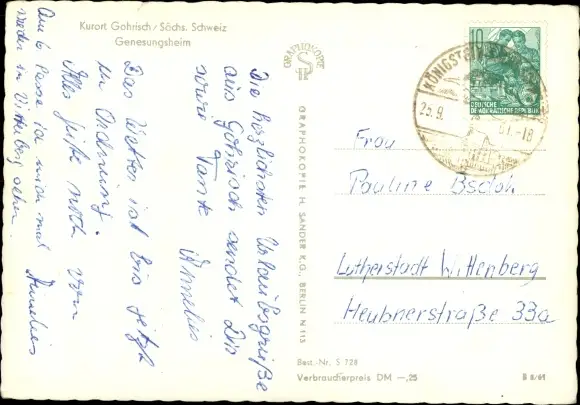 Kurort Gohrisch / Sächs. Schweiz
Genesungsheim
Die herzlichsten Urlaubsgrüße
aus Gohrisch sendet Dir
sowie Tante
Annelies
Das Wetter ist bis jetzt
in Ordnung.
Alles Gute noch von
Am 6. lasse ich mich mal Annelies
wieder in Wittenberg sehen.
GRAPHOKOPIE
GRAPHOKOPIE H. SANDER K.G., BERLIN N 113
10
DEUTSCHE
DEMOKRATISCHE REPUBLIK
KÖNIGSTEIN
25.9. 61.-18
Frau
Pauline
Lutherstadt Wittenberg
Heubnerstraße 33a
Best.-Nr. S 728
Verbraucherpreis DM —,25
B 8/61